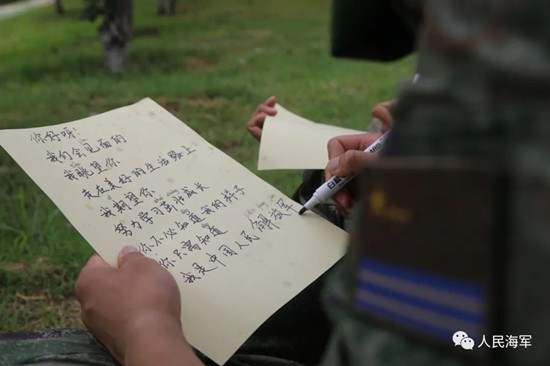 你好呀
我们会见面的
我眺望你
走在美好的生活路上
我期望你
努力学习茁壮成长
你不必知道我的样子
你只需知道
我是中国人民解放军
人民海军